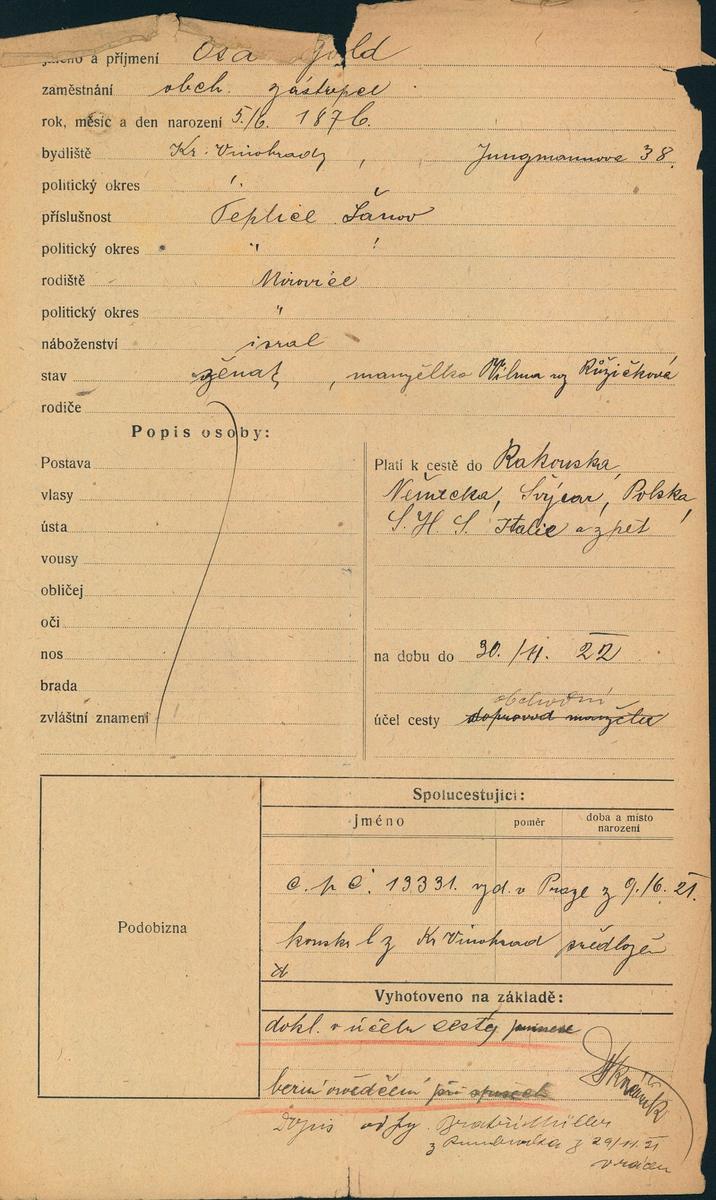 jméno a příjmení
zaměstnání obch. zástupce
rok, měsíc a den narození 5./6. 1876.
bydliště Kr. Vinohrady, Jungmannova 38.
politický okres "
příslušnost Teplice Šanov
politický okres " !
rodiště Mirovice
politický okres "
náboženství israel
stav ženat, manželka Vilma roz Růžičková
rodiče
Popis osoby:
Postava
vlasy
ústa
vousy
obličej
oči
nos
brada
zvláštní znamení
Platí k cestě do Rakouska,
Německa, Švýcar, Polska,
S. H. S. Italie a zpět
na dobu do 30./11. 22
obchodní
účel cesty doprovod manžela
Podobizna
Spolucestující:
jméno poměr doba a místo narození
c. p. č. 13331. vyd. v Praze z 9./6. 21.
konskr l z Kr Vinohrad předložen
Vyhotoveno na základě:
dokl. o účelu cesty
bern osvědčení při spisech
Dopis od fy. Bratří Müller
z 29/11 21
vrácen